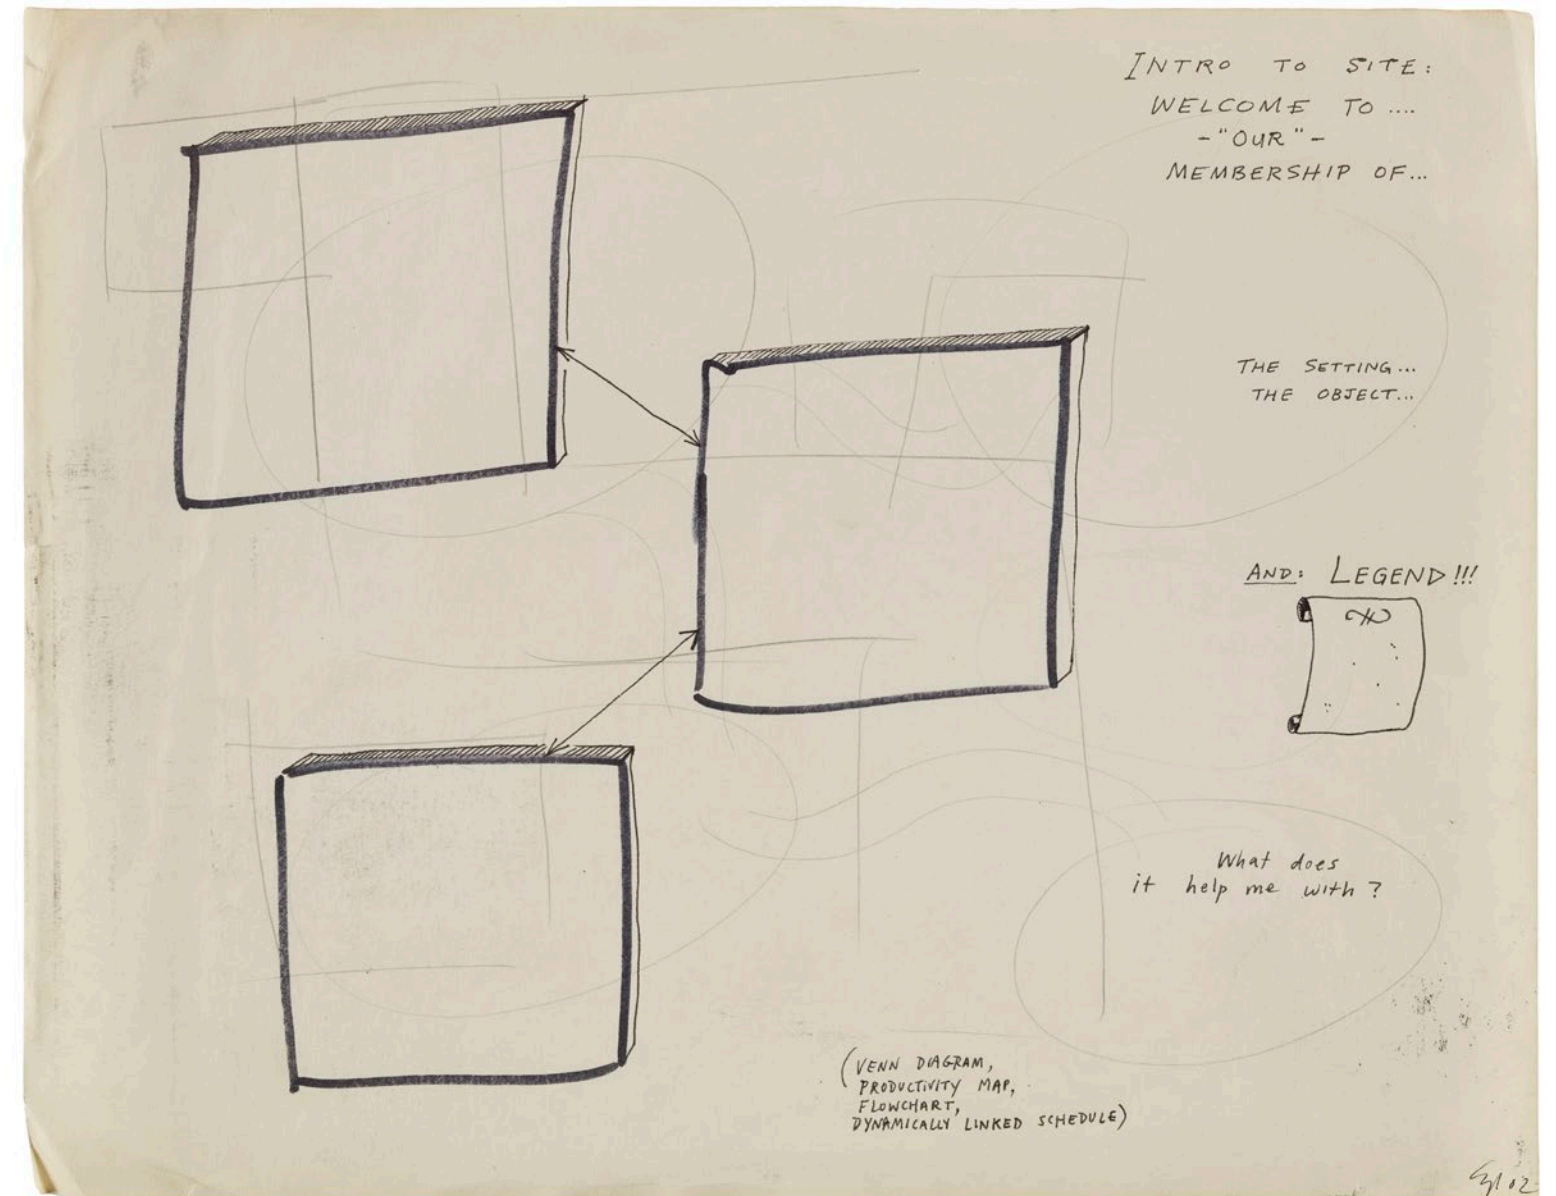 INTRO TO SITE:
WELCOME TO ....
-"OUR"-
MEMBERSHIP OF...
THE SETTING...
THE OBJECT...
AND: LEGEND!!!
What does
it help me with?
(VENN DIAGRAM,
PRODUCTIVITY MAP,
FLOWCHART,
DYNAMICALLY LINKED SCHEDULE)
02